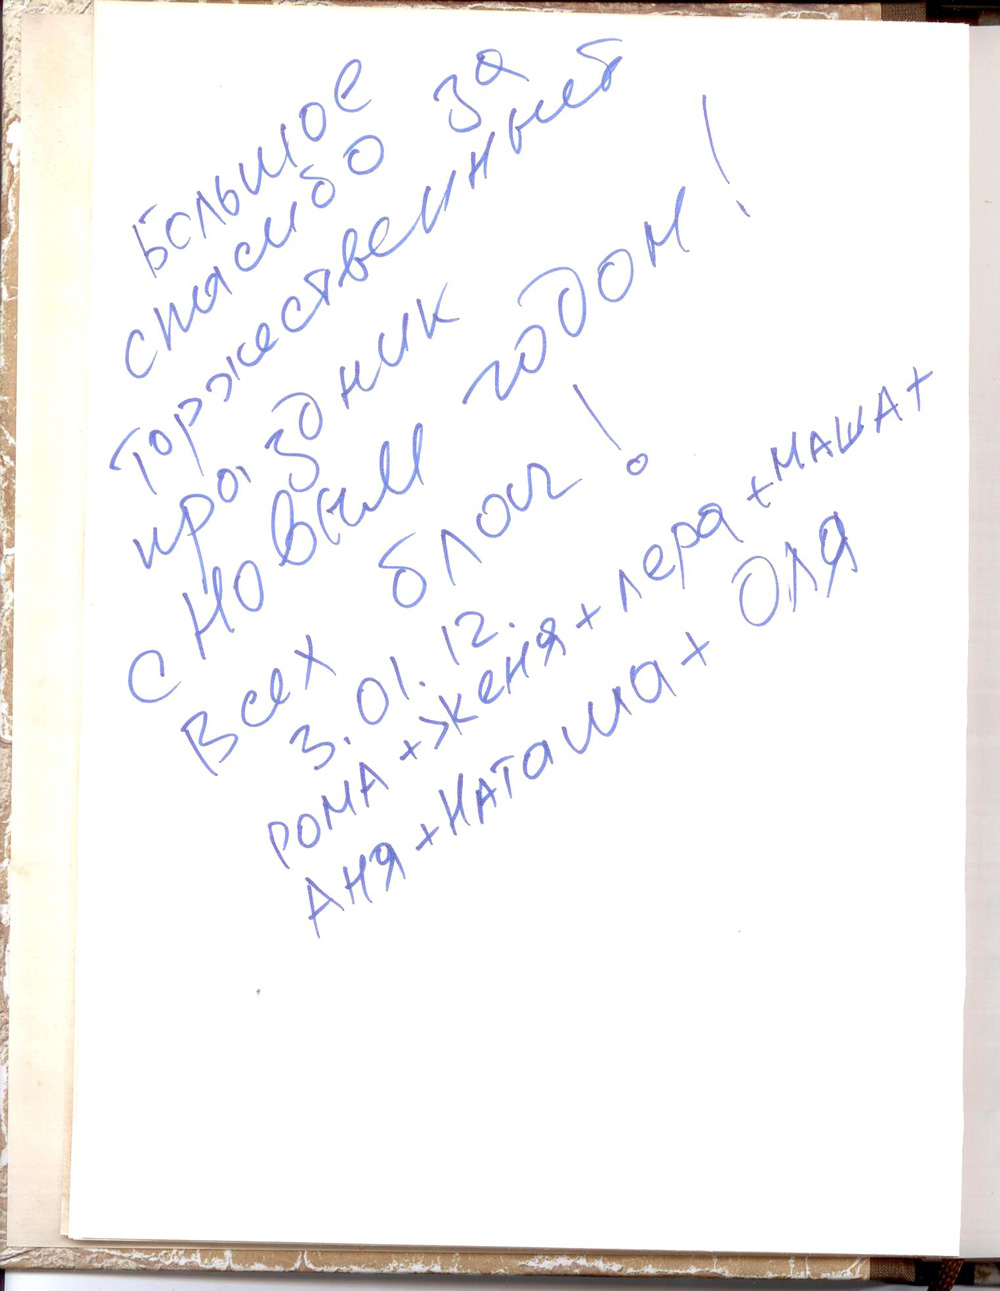 Большое
спасибо за
торжественный
праздник
С Новым годом!
Всех благ!
3.01.12.
РОМА + Женя + лера + МАША +
АНЯ + НАТаша + Оля